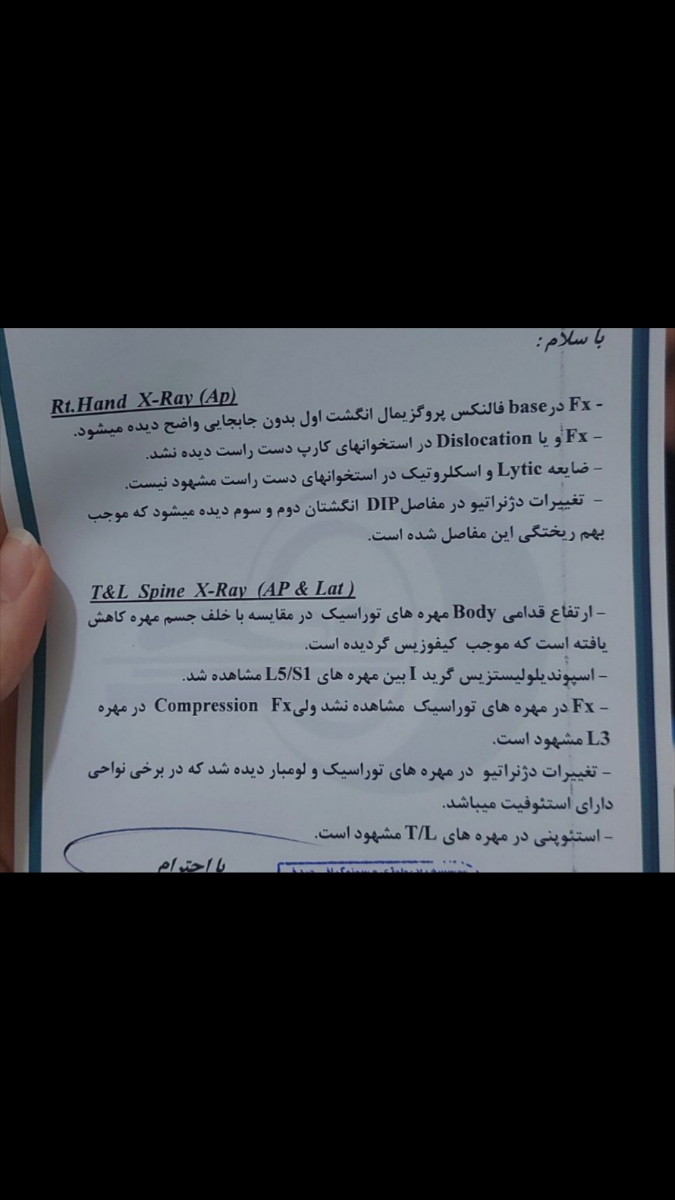 با سلام :
Rt.Hand X-Ray (Ap)
- Fx در base فالنکس پروگزیمال انگشت اول بدون جابجایی واضح دیده میشود.
- Fx و یا Dislocation در استخوانهای کارپ دست راست دیده نشد.
- ضایعه Lytic و اسکلروتیک در استخوانهای دست راست مشهود نیست.
- تغییرات دژنراتیو در مفاصل DIP انگشتان دوم و سوم دیده میشود که موجب
بهم ریختگی این مفاصل شده است.
T&L Spine X-Ray (AP & Lat )
- ارتفاع قدامی Body مهره های توراسیک در مقایسه با خلف جسم مهره کاهش
یافته است که موجب کیفوزیس گردیده است.
- اسپوندیلولیستزیس گرید I بین مهره های L5/S1 مشاهده شد.
- Fx در مهره های توراسیک مشاهده نشد ولی Compression Fx در مهره
L3 مشهود است.
- تغییرات دژنراتیو در مهره های توراسیک و لومبار دیده شد که در برخی نواحی
دارای استئوفیت میباشد.
- استئوپنی در مهره های T/L مشهود است.
با احترام